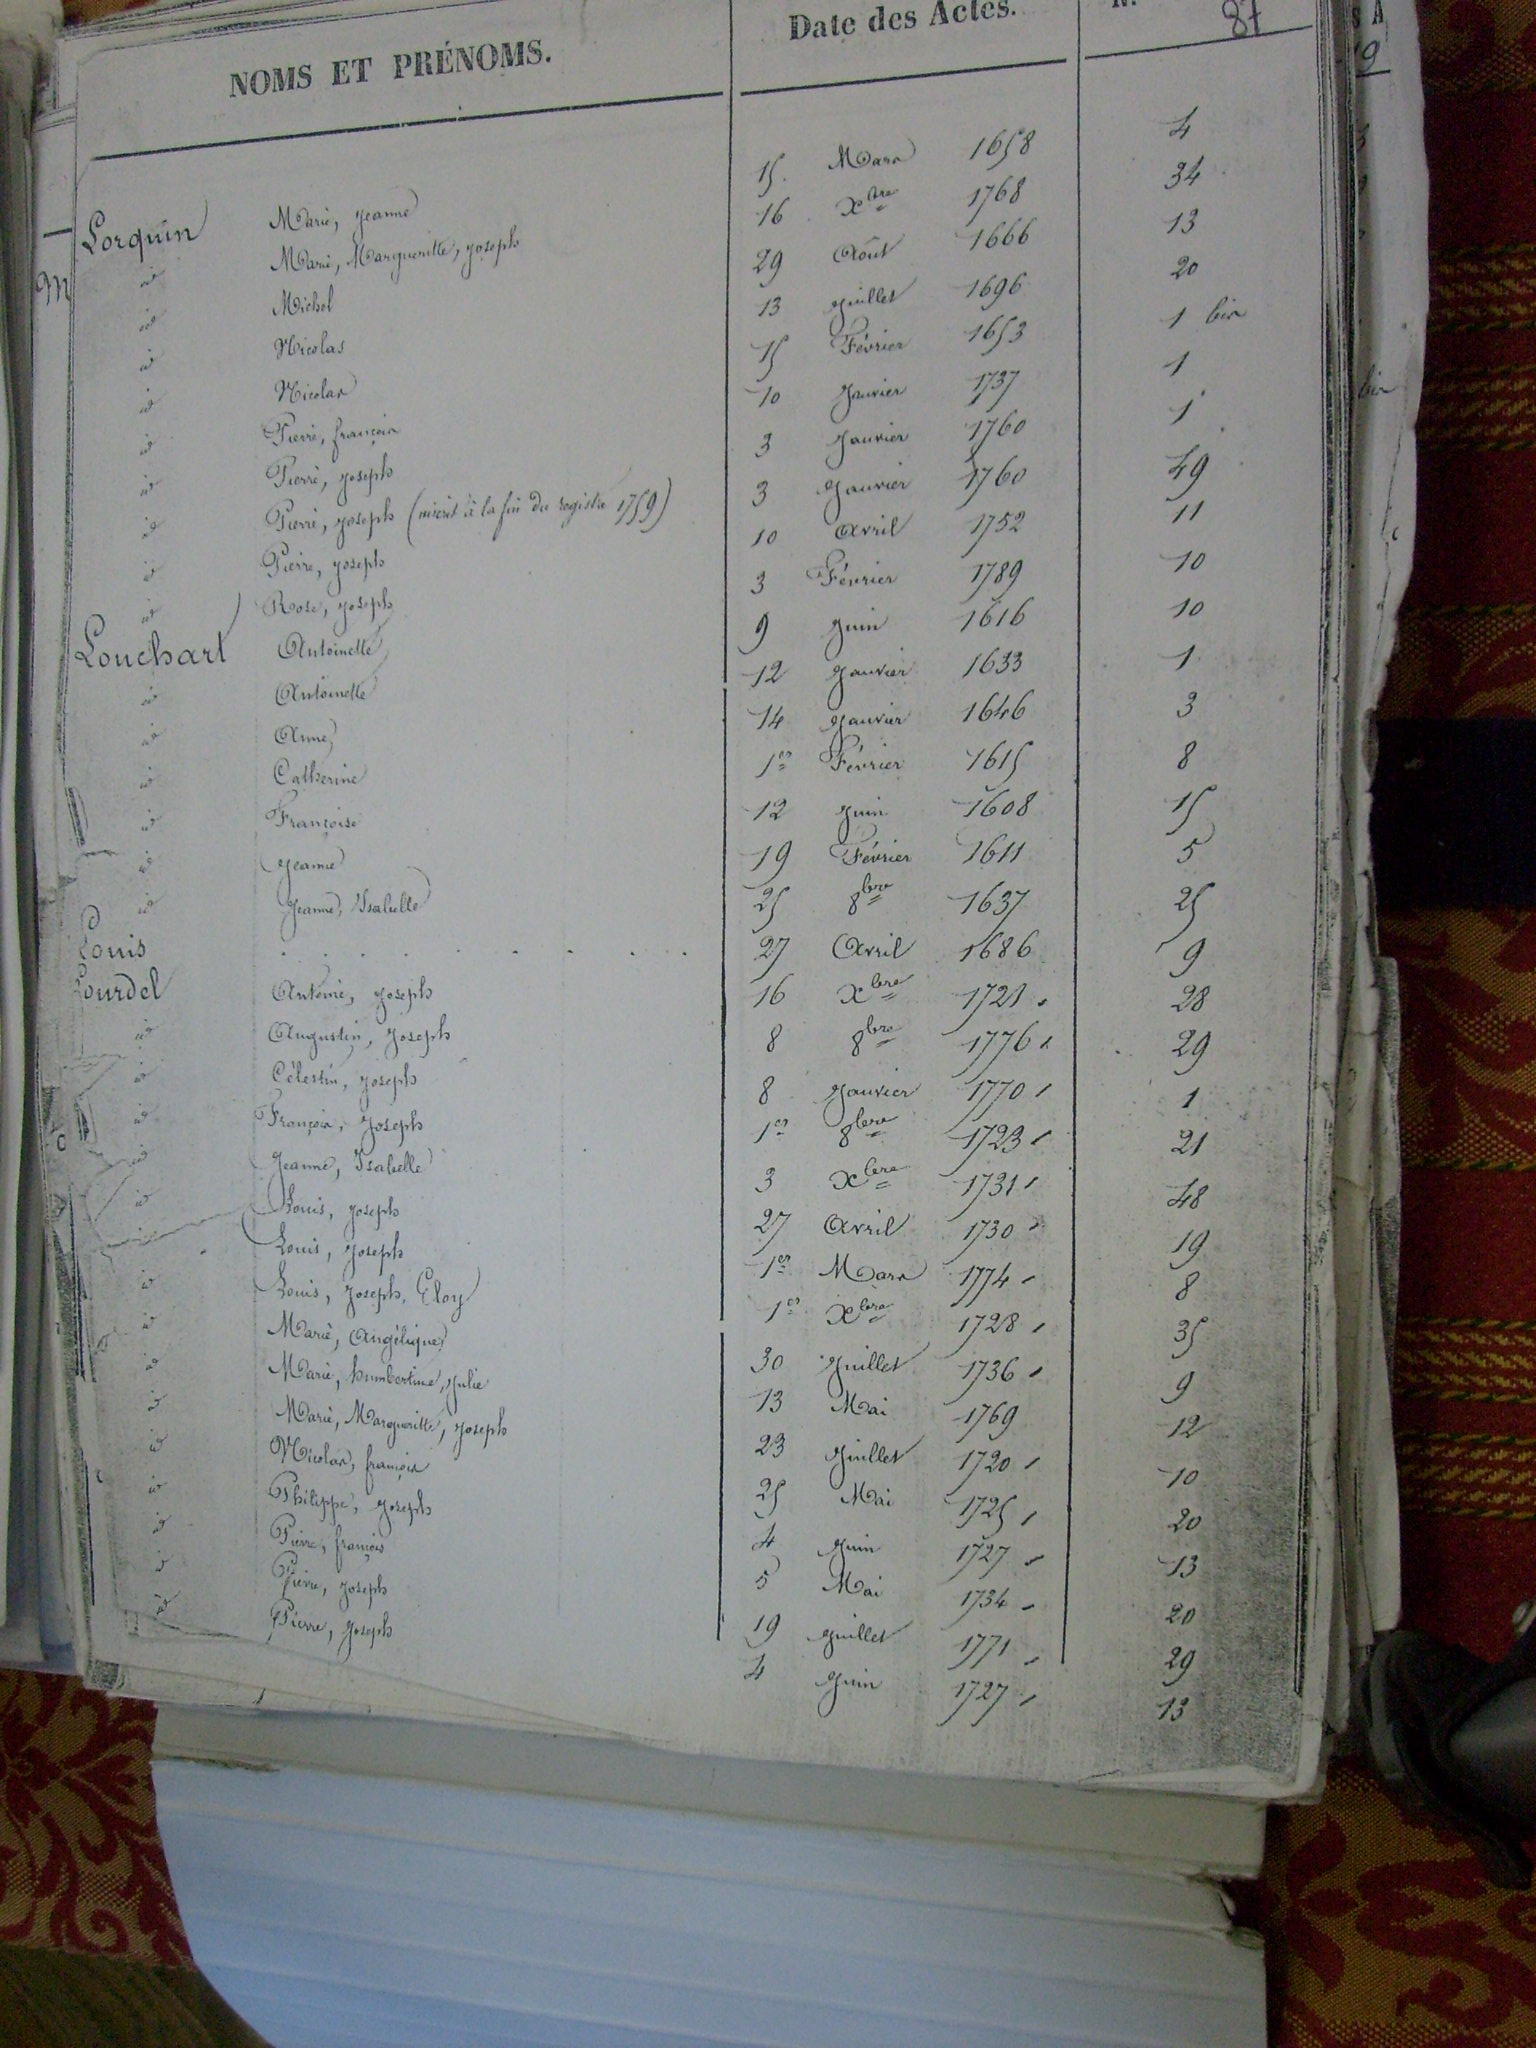 NOMS ET PRÉNOMS. Date des Actes. N. 87
Lorquin Marie, Jeanne 15 Mars 1658 4
id Marie, Margueritte, Joseph 16 Xbre 1768 34
id Michel 29 Août 1666 13
id Nicolas 13 Juillet 1696 20
id Nicolas 15 Février 1653 1 bis
id Pierre, françois 10 Janvier 1737 1
id Pierre, Joseph 3 Janvier 1760 1
id Pierre, Joseph (inscrit à la fin du registre 1759) 3 Janvier 1760 49
id Pierre, Joseph 10 Avril 1752 11
id Rose, Joseph 3 Février 1789 10
Louchart Antoinette 9 Juin 1616 10
id Antoinette 12 Janvier 1633 1
id Anne 14 Janvier 1646 3
id Catherine 1er Février 1615 8
id Françoise 12 Juin 1608 15
id Jeanne 19 Février 1611 5
id Jeanne, Isabelle 25 8bre 1637 25
Louis . . . . . . . . 27 Avril 1686 9
Lourdel Antoine, Joseph 16 Xbre 1721 28
id Augustin, Joseph 8 8bre 1776 29
id Célestin, Joseph 8 Janvier 1770 1
id François, Joseph 1er 8bre 1723 21
id Jeanne, Isabelle 3 Xbre 1731 48
id Louis, Joseph 27 Avril 1730 19
id Louis, Joseph 1er Mars 1774 8
id Louis, Joseph, Eloy 1er Xbre 1728 35
id Marie, Angélique 30 Juillet 1736 9
id Marie, humbertine, Julie 13 Mai 1769 12
id Marie, Margueritte, Joseph 23 Juillet 1720 10
id Nicolas, françois 25 Mai 1725 20
id Philippe, Joseph 4 Juin 1727 13
id Pierre, françois 5 Mai 1734 20
id Pierre, Joseph 19 Juillet 1771 29
id Pierre, Joseph 4 Juin 1727 13